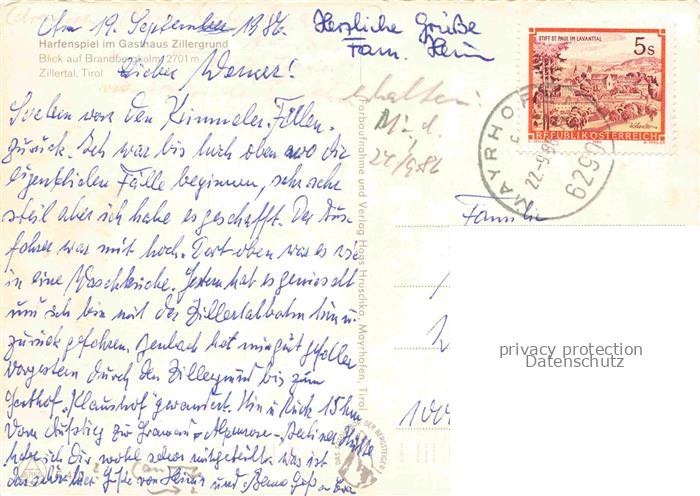 Am 19. September 1986
Harfenspiel im Gasthaus Zillergrund
Blick auf Brandbergkolm 2701 m
Zillertal, Tirol
Lieber Werner!
Soeben von den Krimmeler-Fällen
zurück. Ich war bis hoch oben wo die
eigentlichen Fälle beginnen, sehr sehr
steil aber ich habe es geschafft. Der Bus-
fahrer war mit hoch. Dort oben war es wie
in eine Waschküche. Gestern hat es genieselt
und ich bin mit der Zillertalbahn hin u.
zurück gefahren. Jenbach hat mir gut gefallen
Vorgestern durch den Zillergrund bis zum
Gasthof "Klaushof" gewandert. Hin u. Rück 15 km
Vom Aufstieg zur Alpenrose Berliner Hütte
habe ich Dir wohl schon mitgeteilt. Was ist
Grüße von und
Herzliche Grüße
Fam. Heim
erhalten:
24/9.86
Farbaufnahme und Verlag Hans Hruschka, Mayrhofen, Tirol
STIFT ST. PAUL IM LAVANTTAL
5 S
REPUBLIK ÖSTERREICH
MAYRHOF
22.-9.86
6290
Familie
privacy protection
Datenschutz